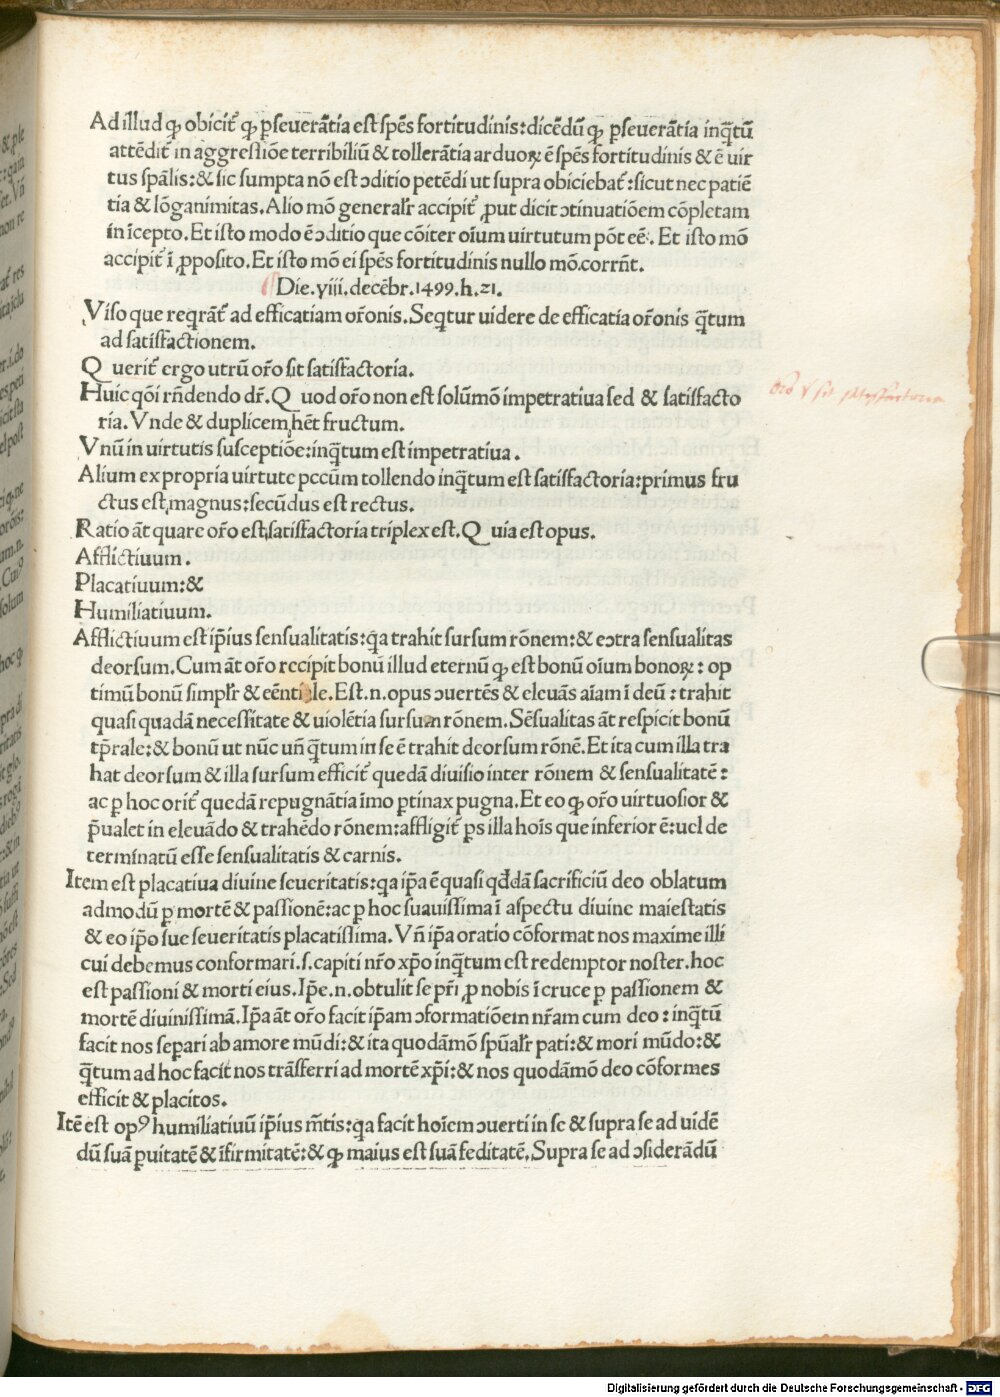 Ad illud qꝫ obicit᷑ qꝫ ꝑseuerãtia est spẽs fortitudinis: dicẽdũ qꝫ ꝑseuerãtia inq̃tũ
attẽdit᷑ in aggressiõe terribiliũ & tollerãtia arduoꝝ ẽ spẽs fortitudinis & ẽ uir
tus spãlis: & sic sumpta nõ est ↄditio petẽdi ut supra obiciebat᷑: sicut nec patiẽ
tia & lõganimitas. Alio mõ generalr̃ accipit᷑ ꝓut dicit ↄtinuatiõem cõpletam
in ĩcepto. Et isto modo ẽ ↄditio que cõiter oĩum uirtutum põt eẽ. Et isto mõ
accipit᷑ ĩ ꝓposito. Et isto mõ ei spẽs fortitudinis nullo mõ. corrñt.
Die. yiii. decẽbr. 1499. h. 21.
Viso que reqrãt᷑ ad efficatiam or̃onis. Seqtur uidere de efficatia or̃onis q̃tum
ad satisfactionem.
Q uerit᷑ ergo utrũ or̃o sit satisfactoria.
Huic qõi rñdendo dr̃. Q uod or̃o non est solũmõ impetratiua sed & satisfacto
ria. Vnde & duplicem hẽt fructum.
Vnũ in uirtutis susceptiõe: inq̃tum est impetratiua.
Alium ex propria uirtute pccũm tollendo inq̃tum est satisfactoria: primus fru
ctus est magnus: secũdus est rectus.
Ratio ãt quare or̃o est satisfactoria triplex est. Q uia est opus.
Afflictiuum.
Placatiuum: &
Humiliatiuum.
Afflictiuum est ip̃ius sensualitatis: qa trahit sursum rõnem: & eↄtra sensualitas
deorsum. Cum ãt or̃o recipit bonũ illud eternũ qꝫ est bonũ oĩum bonoꝝ: op
timũ bonũ simplr̃ & eẽntiale. Est. n. opus ↄuertẽs & eleuãs aĩam ĩ deũ: trahit
quasi quadã necessitate & uiolẽtia sursum rõnem. Sẽsualitas ãt respicit bonũ
tp̃rale: & bonũ ut nũc uñ q̃tum in se ẽ trahit deorsum rõnẽ. Et ita cum illa tra
hat deorsum & illa sursum efficit᷑ quedã diuisio inter rõnem & sensualitatẽ:
ac ꝑ hoc orit᷑ quedã repugnãtia ĩmo ꝑtinax pugna. Et eo qꝫ or̃o uirtuosior &
p̃ualet in eleuãdo & trahẽdo rõnem: affligit᷑ ꝑs illa hoĩs que inferior ẽ: uel de
terminatũ esse sensualitatis & carnis.
Item est placatiua diuine seueritatis: qa ip̃a ẽ quasi qd̃dã sacrificiũ deo oblatum
admodũ ꝑ mortẽ & passionẽ: ac ꝑ hoc suauissima ĩ aspectu diuine maiestatis
& eo ip̃o sue seueritatis placatissima. Vñ ip̃a oratio cõformat nos maxime illi
cui debemus conformari. s. capiti nr̃o xp̃o inq̃tum est redemptor noster. hoc
est passioni & morti eius. Ip̃e. n. obtulit se pr̃i ꝓ nobis ĩ cruce ꝑ passionem &
mortẽ diuinissimã. Ip̃a ãt or̃o facit ip̃am ↄformatiõem nr̃am cum deo: inq̃tũ
facit nos seꝑari ab amore mũdi: & ita quodãmõ spũalr̃ pati: & mori mũdo: &
q̃tum ad hoc facit nos trãsferri ad mortẽ xp̃i: & nos quodãmõ deo cõformes
efficit & placitos.
Itẽ est opꝰ humiliatiuũ ip̃ius mẽtis: qa facit hoĩem ↄuerti in se & supra se ad uidẽ
dũ suã ꝑuitatẽ & ĩfirmitatẽ: & qꝫ maius est suã feditatẽ. Supra se ad ↄsiderãdũ
Digitalisierung gefördert durch die Deutsche Forschungsgemeinschaft - DFG